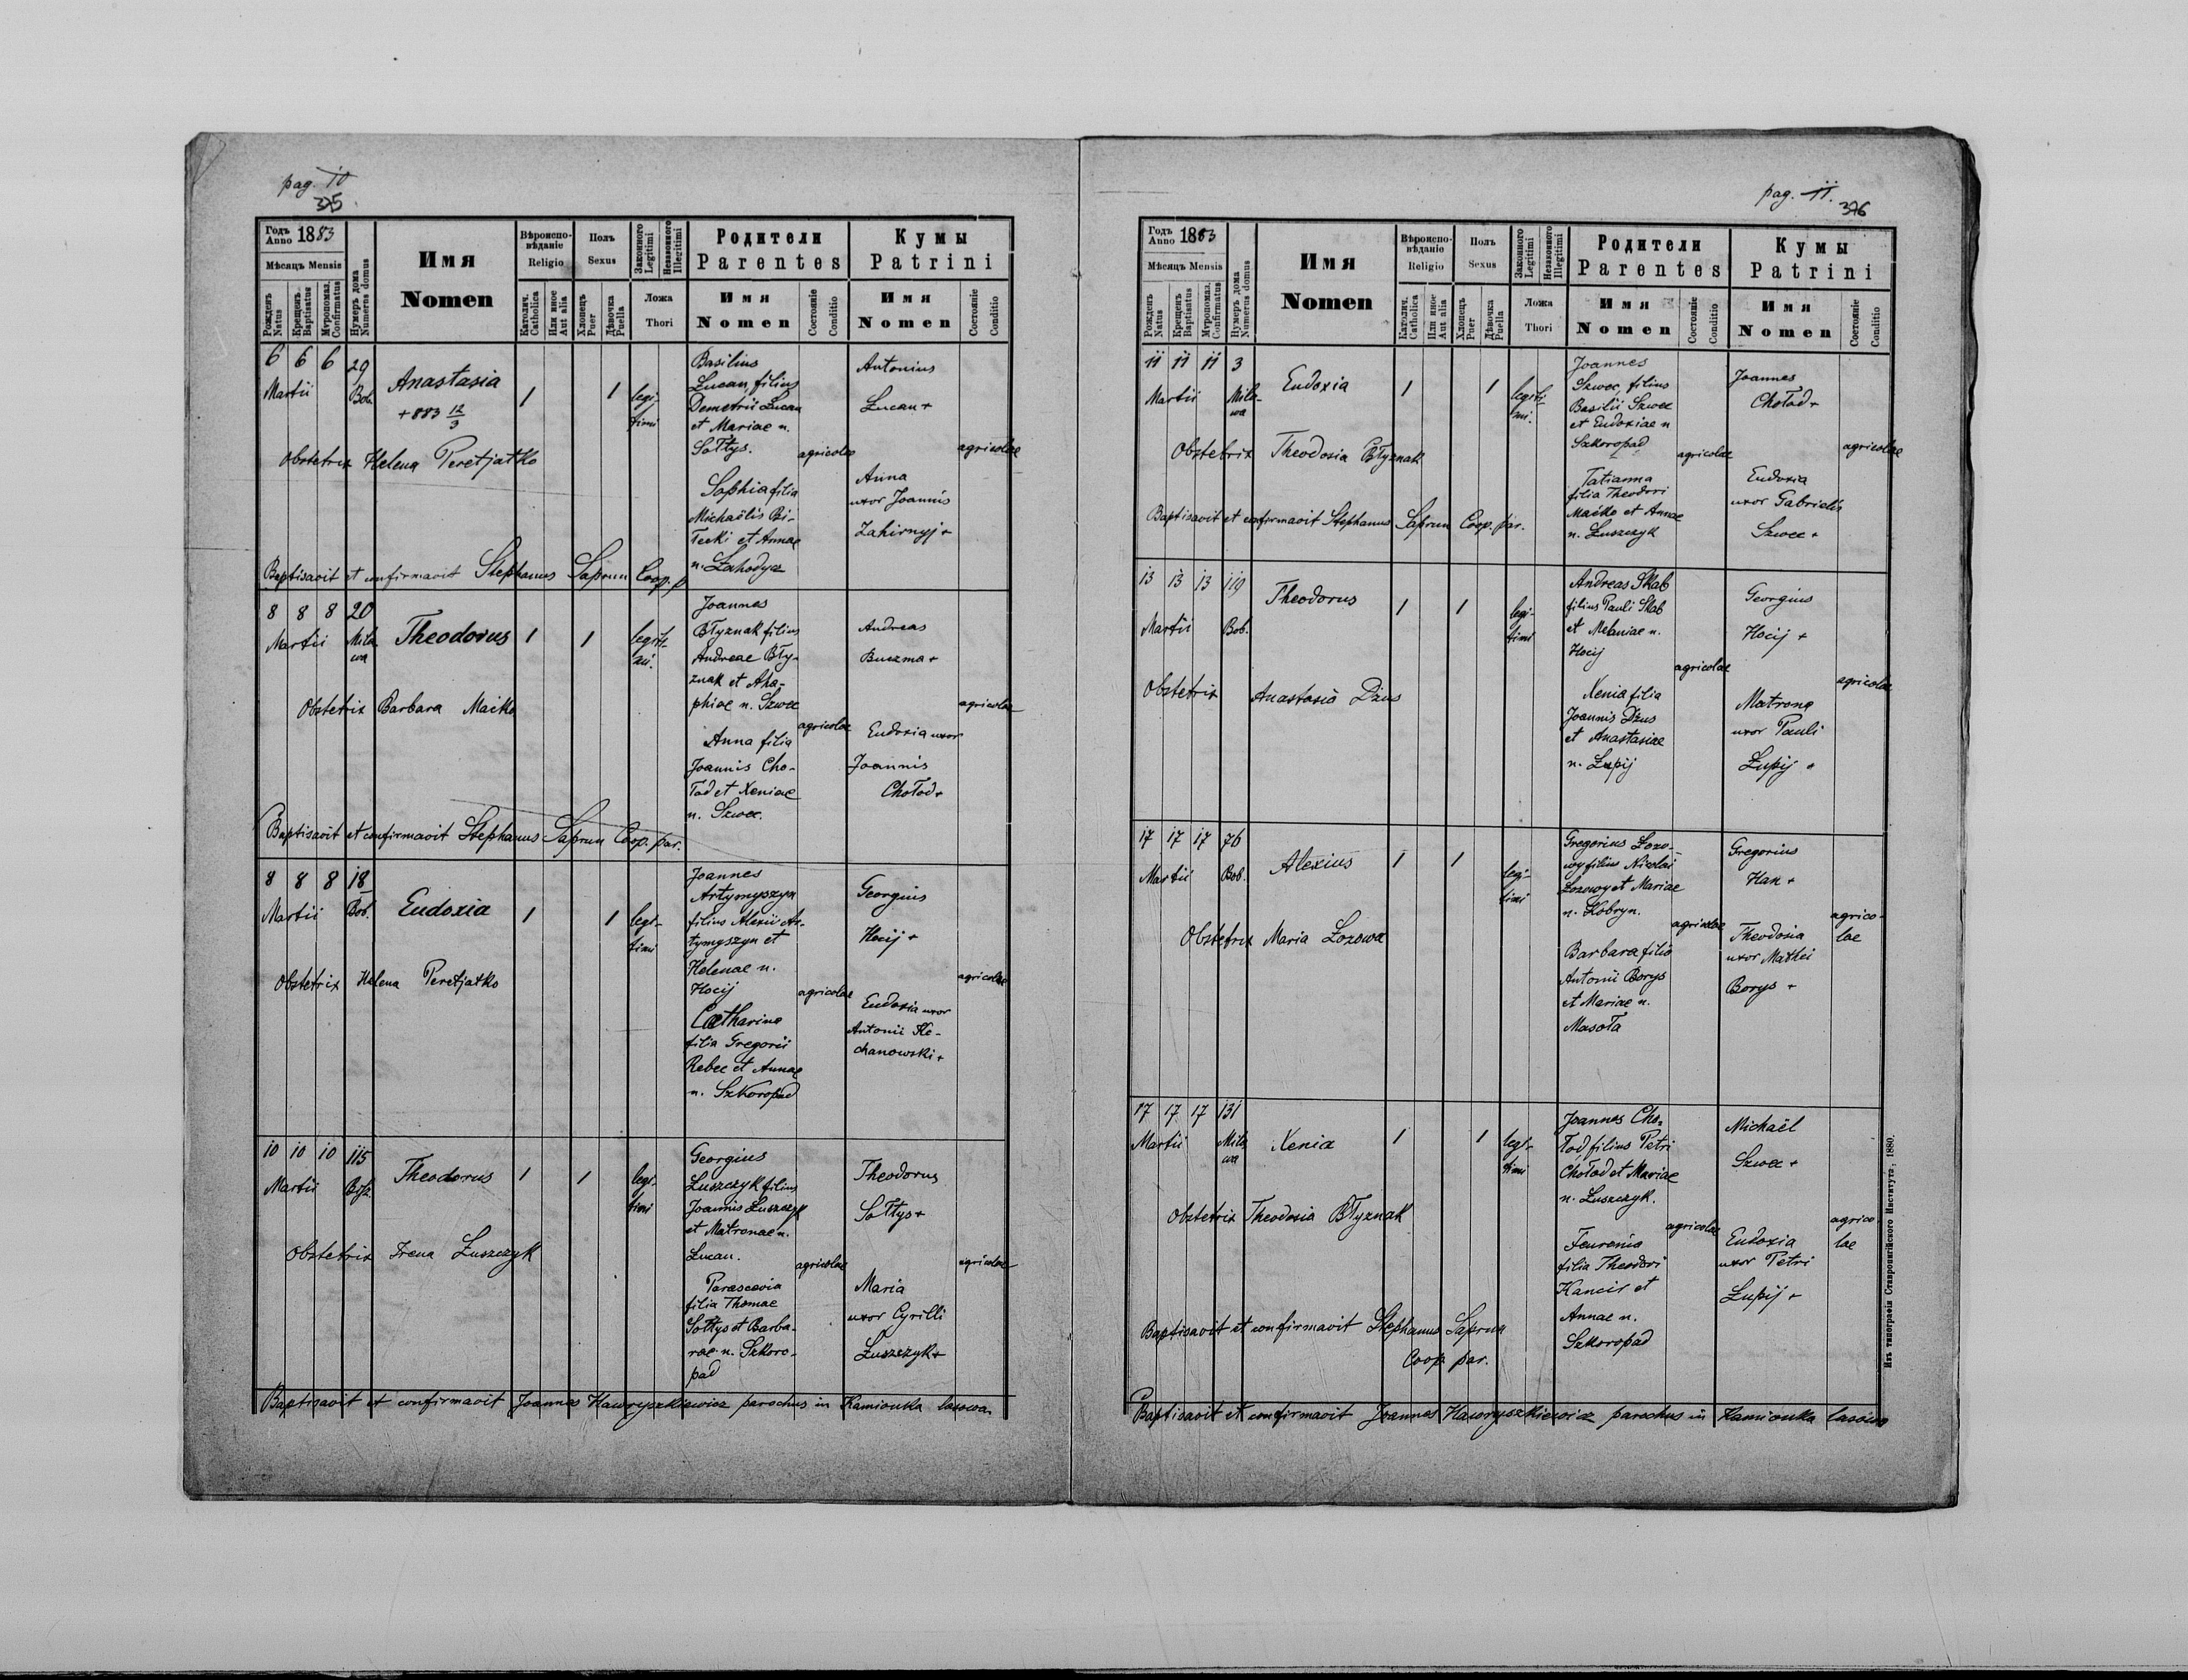 pag. 10
375.
Годъ Anno 1883
Мѣсяцъ Mensis
Рожденъ Natus
Крещенъ Baptisatus
Мѵропомаз. Confirmatus
Нумеръ дома Numerus domus
Имя
Nomen
Вѣроиспо-
вѣданіе
Religio
Католич. Catholica
Или иное Aut alia
Полъ
Sexus
Хлопецъ Puer
Дѣвочка Puella
Законного Legitimi
Незаконного Illegitimi
Ложа
Thori
Родители
Parentes
Имя
Nomen
Состояніе
Conditio
Кумы
Patrini
Имя
Nomen
Состояніе
Conditio
6 6 6 29
Martii Bob.
Anastasia
+ 883 12/3
1 1
legi-
timi
Basilius
Lucan, filius
Demetrii Lucan
et Mariae n.
Sołtys.
agricolae
Sophia filia
Michaëlis Bi-
łecki et Annae
n. Zahodycz
Antonius
Lucan +
agricolae
Anna
uxor Joannis
Zahirnyj +
Obstetrix Helena Peretjatko
Baptisavit et confirmavit Stephanus Saprun Coop. p
8 8 8 20
Martii Mila
wa
Theodorus
1 1
legiti-
mi.
Joannes
Błyznak filius
Andreae Bły-
znak et Aha-
phiae n. Szwec
agricolae
Anna filia
Joannis Cho-
łod et Xeniae
n. Szwec.
Andreas
Buczma +
agricolae
Eudoxia uxor
Joannis
Chołod +
Obstetrix Barbara Maćko
Baptisavit et confirmavit Stephanus Saprun Coop. par.
8 8 8 18
Martii Bob.
Eudoxia
1 1
legi-
timi
Joannes
Artymyszyn
filius Alexii Ar-
tymyszyn et
Helenae n.
Hocij
agricolae
Catharina
filia Gregorii
Rebec et Annae
n. Szkoropad
Georgius
Hocij +
agricolae
Eudoxia uxor
Antonii Ko-
chanowski +
Obstetrix Helena Peretjatko
10 10 10 115
Martii
Theodorus
1 1
legi-
timi
Georgius
Łuszczyk filius
Joannis Łuszczyk
et Matronae n.
Lucan.
agricolae
Parascevia
filia Thomae
Sołtys et Barba-
rae n. Szkoro-
pad
Theodorus
Sołtys +
agricolae
Maria
uxor Cyrilli
Łuszczyk +
Obstetrix Irena Łuszczyk
Baptisavit et confirmavit Joannes Hawryszkiewicz parochus in Kamionka lasowa.
pag. 11.
376
Годъ Anno 1883
Мѣсяцъ Mensis
Рожденъ Natus
Крещенъ Baptisatus
Мѵропомаз. Confirmatus
Нумеръ дома Numerus domus
Имя
Nomen
Вѣроиспо-
вѣданіе
Religio
Католич. Catholica
Или иное Aut alia
Полъ
Sexus
Хлопецъ Puer
Дѣвочка Puella
Законного Legitimi
Незаконного Illegitimi
Ложа
Thori
Родители
Parentes
Имя
Nomen
Состояніе
Conditio
Кумы
Patrini
Имя
Nomen
Состояніе
Conditio
11 11 11 3
Martii Mila-
wa
Eudoxia
1 1
legiti-
mi.
Joannes
Szwec, filius
Basilii Szwec
et Eudoxiae n
Szkoropad
agricolae
Tatianna
filia Theodori
Maćko et Annae
n. Łuszczyk
Joannes
Chołod +
agricolae
Eudoxia
uxor Gabrielis
Szwec +
Obstetrix Theodosia Błyznak
Baptisavit et confirmavit Stephanus Saprun Coop. par.
13 13 13 119
Martii Bob.
Theodorus
1 1
legi-
timi
Andreas Skab
filius Pauli Skab
et Melaniae n.
Hocij
agricolae
Xenia filia
Joannis Dzus
et Anastasiae
n. Łupij
Georgius
Hocij +
agricolae
Matrona
uxor Pauli
Łupij +
Obstetrix Anastasia Dzus
17 17 17 76
Martii Bob.
Alexius
1 1
legi-
timi
Gregorius Łozo-
wy filius Nicolai
Łozowy et Mariae
n. Kobryn.
agricolae
Barbara filia
Antonii Borys
et Mariae n.
Masoła
Gregorius
Hak +
agrico-
lae
Theodosia
uxor Mathei
Borys +
Obstetrix Maria Łozowa
17 17 17 131
Martii Mila
wa
Xenia
1 1
legi-
timi
Joannes Cho-
łod, filius Petri
Chołod et Mariae
n. Łuszczyk.
agricolae
Feuronia
filia Theodori
Kancir et
Annae n.
Szkoropad
Michaël
Szwec +
agrico
lae
Eudoxia
uxor Petri
Łupij +
Obstetrix Theodosia Błyznak
Baptisavit et confirmavit Stephanus Saprun
Coop par.
Baptisavit et confirmavit Joannes Hawryszkiewicz parochus in Kamionka lasowa
Изъ типографіи Ставропигійского Института, 1880.